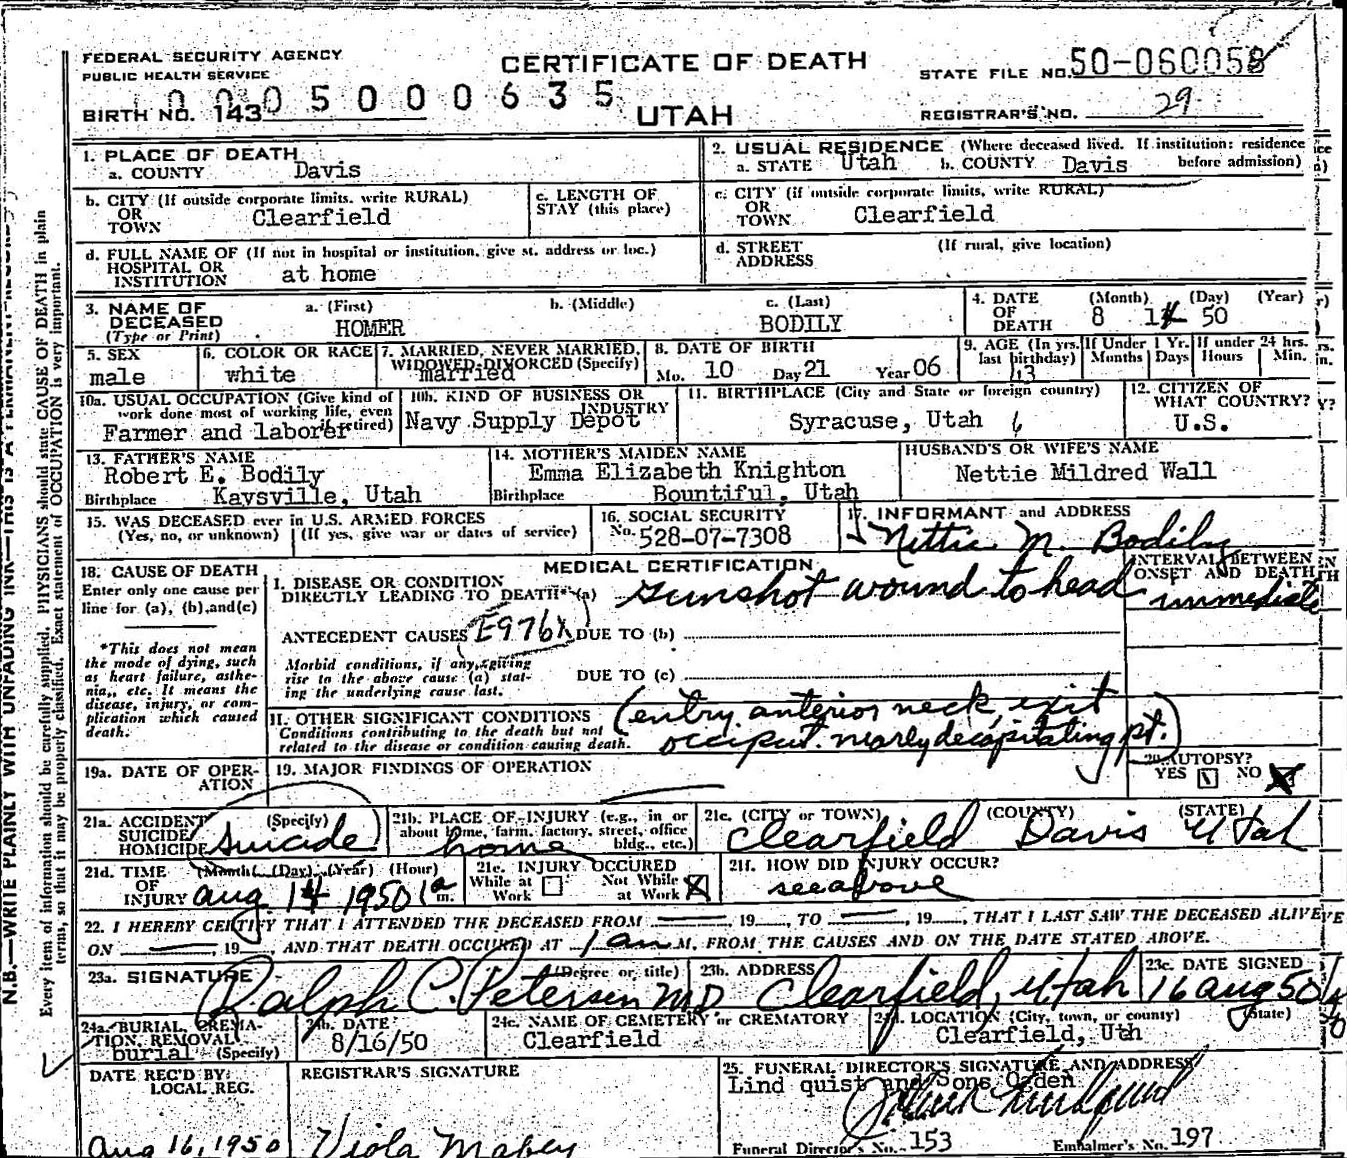 FEDERAL SECURITY AGENCY
PUBLIC HEALTH SERVICE
CERTIFICATE OF DEATH
UTAH
STATE FILE NO. 50-060058
BIRTH NO. 143
0005000635
REGISTRAR'S NO. 29
1. PLACE OF DEATH
a. COUNTY Davis
2. USUAL RESIDENCE (Where deceased lived. If institution: residence before admission)
a. STATE Utah b. COUNTY Davis
b. CITY (If outside corporate limits. write RURAL) OR TOWN Clearfield
c. LENGTH OF STAY (this place)
c. CITY (if outside corporate limits, write RURAL) OR TOWN Clearfield
d. FULL NAME OF (If not in hospital or institution, give st. address or loc.) HOSPITAL OR INSTITUTION at home
d. STREET ADDRESS (If rural, give location)
3. NAME OF DECEASED (Type or Print)
a. (First) HOMER
b. (Middle)
c. (Last) BODILY
4. DATE OF DEATH (Month) (Day) (Year) 8 14 50
5. SEX male
6. COLOR OR RACE white
7. MARRIED, NEVER MARRIED, WIDOWED, DIVORCED (Specify) married
8. DATE OF BIRTH Mo. 10 Day 21 Year 06
9. AGE (In yrs. last birthday) If Under 1 Yr. Months Days If under 24 hrs. Hours Min.
10a. USUAL OCCUPATION (Give kind of work done most of working life, even if retired) Farmer and laborer
10b. KIND OF BUSINESS OR INDUSTRY Navy Supply Depot
11. BIRTHPLACE (City and State or foreign country) Syracuse, Utah
12. CITIZEN OF WHAT COUNTRY? U.S.
13. FATHER'S NAME Robert E. Bodily
Birthplace Kaysville, Utah
14. MOTHER'S MAIDEN NAME Emma Elizabeth Knighton
Birthplace Bountiful, Utah
HUSBAND'S OR WIFE'S NAME Nettie Mildred Wall
15. WAS DECEASED ever in U.S. ARMED FORCES
(Yes, no, or unknown) (If yes, give war or dates of service)
16. SOCIAL SECURITY No. 528-07-7308
17. INFORMANT and ADDRESS Nettie M. Bodily
18. CAUSE OF DEATH
Enter only one cause per line for (a), (b), and (c)
MEDICAL CERTIFICATION
INTERVAL BETWEEN ONSET AND DEATH
I. DISEASE OR CONDITION DIRECTLY LEADING TO DEATH* (a) Gunshot wound to head immediate
ANTECEDENT CAUSES E976X DUE TO (b)
Morbid conditions, if any, giving rise to the above cause (a) stating the underlying cause last.
DUE TO (c)
*This does not mean the mode of dying, such as heart failure, asthenia, etc. It means the disease, injury, or complication which caused death.
II. OTHER SIGNIFICANT CONDITIONS
Conditions contributing to the death but not related to the disease or condition causing death.
(entry anterior neck, exit
occiput. nearly decapitating pt.)
19a. DATE OF OPERATION
19. MAJOR FINDINGS OF OPERATION
20. AUTOPSY? YES NO
21a. ACCIDENT SUICIDE HOMICIDE (Specify) Suicide
21b. PLACE OF INJURY (e.g., in or about home, farm, factory, street, office bldg., etc.) home
21c. (CITY or TOWN) (COUNTY) (STATE) Clearfield Davis Utah
21d. TIME OF INJURY (Month) (Day) (Year) (Hour) Aug 14 1950 1 a m.
21e. INJURY OCCURED While at Work Not While at Work
21f. HOW DID INJURY OCCUR? see above
22. I HEREBY CERTIFY THAT I ATTENDED THE DECEASED FROM 19, TO , 19, THAT I LAST SAW THE DECEASED ALIVE
ON , 19, AND THAT DEATH OCCURED AT 1 am M, FROM THE CAUSES AND ON THE DATE STATED ABOVE.
23a. SIGNATURE (Degree or title) Ralph C. Petersen MD
23b. ADDRESS Clearfield, Utah
23c. DATE SIGNED 16 Aug 50
24a. BURIAL, CREMATION, REMOVAL (Specify) burial
24b. DATE 8/16/50
24c. NAME OF CEMETERY or CREMATORY Clearfield
24d. LOCATION (City, town, or county) (State) Clearfield, Utah
DATE REC'D BY LOCAL REG. Aug 16, 1950
REGISTRAR'S SIGNATURE Viola Mabey
25. FUNERAL DIRECTOR'S SIGNATURE AND ADDRESS
Lind quist and Sons Ogden
Funeral Director's No. 153
Embalmer's No. 197
N.B.—WRITE PLAINLY WITH UNFADING INK—THIS IS A PERMANENT RECORD
Every item of information should be carefully supplied. PHYSICIANS should state CAUSE OF DEATH in plain
terms, so that it may be properly classified. Exact statement of OCCUPATION is very important.